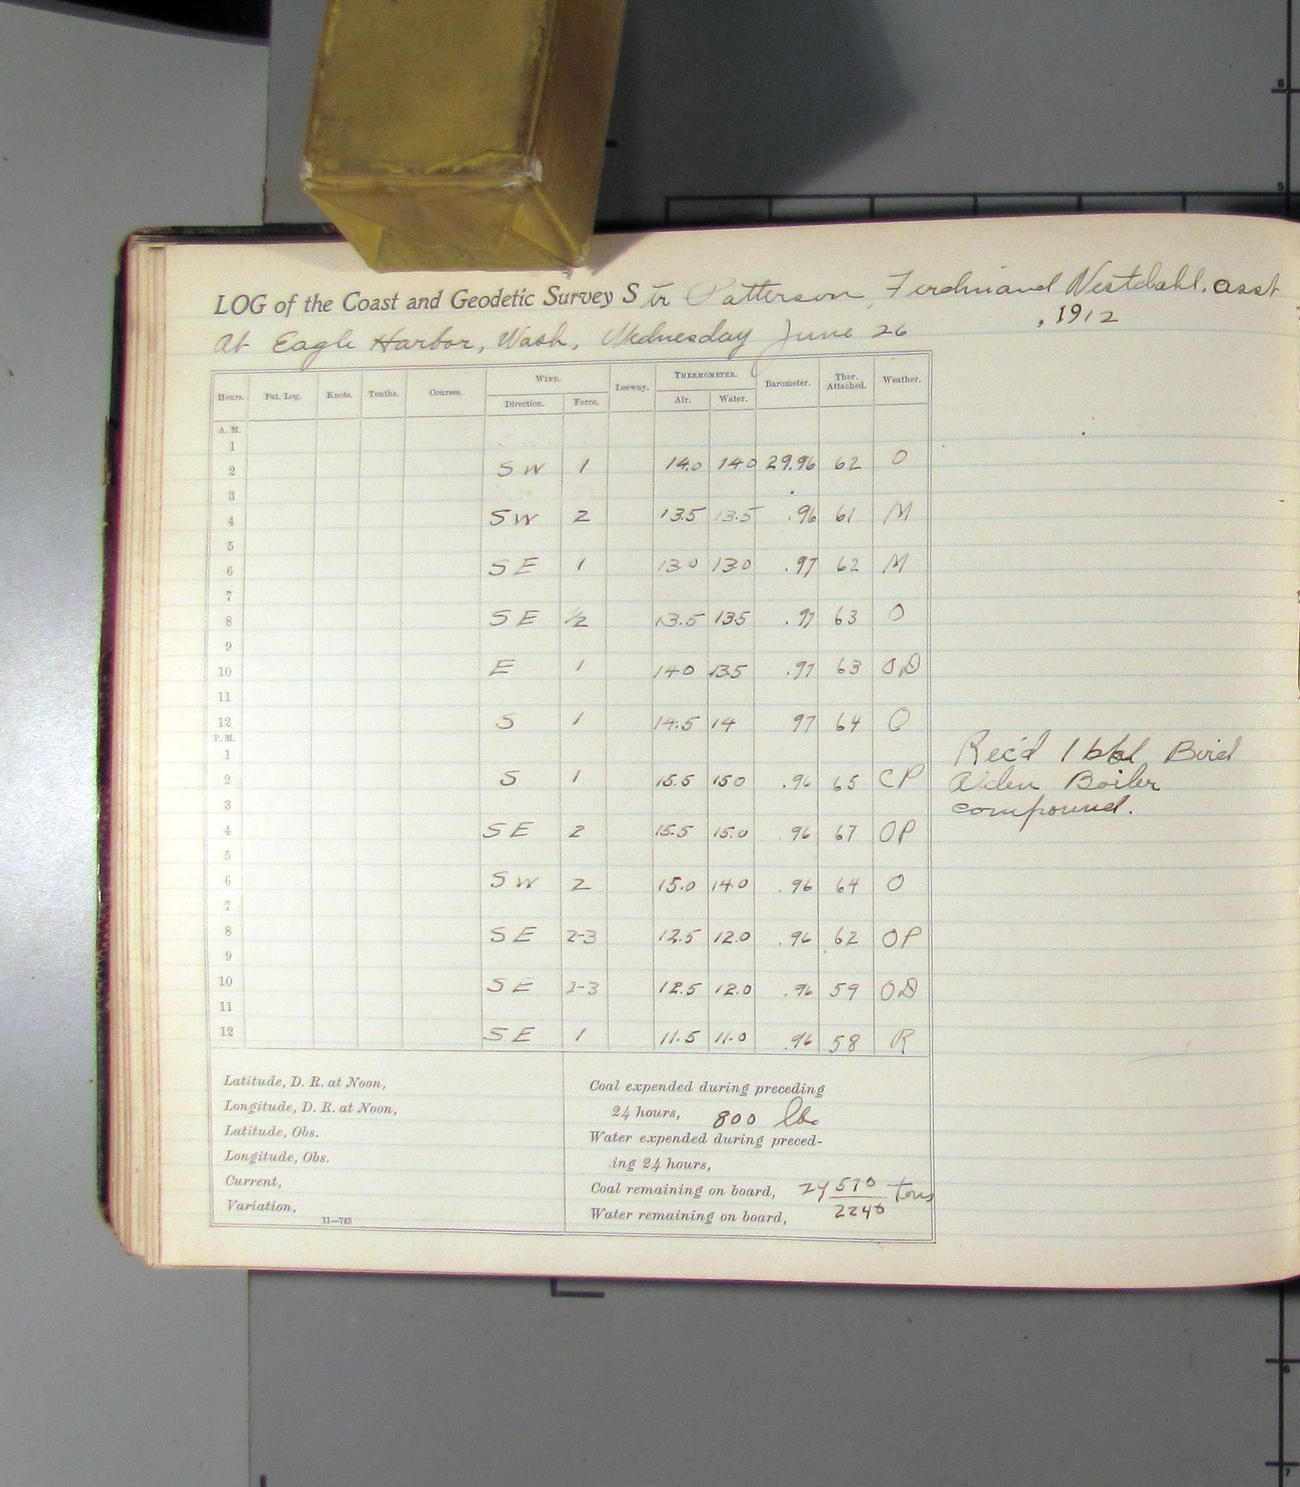 LOG of the Coast and Geodetic Survey Str Patterson, Ferdinand Westdahl, asst
At Eagle Harbor, Wash, Wednesday June 26, 1912
Hours. Pat. Log. Knots. Tenths. Courses. WIND. Leeway. THERMOMETER. Barometer. Ther. Attached. Weather.
Direction. Force. Air. Water.
A. M.
1
2 SW 1 14.0 14.0 29.96 62 O
3
4 SW 2 13.5 13.5 .96 61 M
5
6 SE 1 13.0 13.0 .97 62 M
7
8 SE 1/2 13.5 135 .97 63 O
9
10 E 1 140 135 .97 63 OD
11
12 S 1 14.5 14 97 64 O
P. M.
1
2 S 1 15.5 150 .96 65 CP
3
4 SE 2 15.5 15.0 .96 67 OP
5
6 SW 2 15.0 14.0 .96 64 O
7
8 SE 2-3 12.5 12.0 .96 62 OP
9
10 SE 2-3 12.5 12.0 .96 59 OD
11
12 SE 1 11.5 11.0 .96 58 R
Rec'd 1 bbl Bird
Alden Boiler
compound.
Latitude, D. R. at Noon,
Longitude, D. R. at Noon,
Latitude, Obs.
Longitude, Obs.
Current,
Variation,
11—743
Coal expended during preceding
24 hours, 800 lbs
Water expended during preced-
ing 24 hours,
Coal remaining on board, 29 570/2240 tons
Water remaining on board,
6
5
6
7